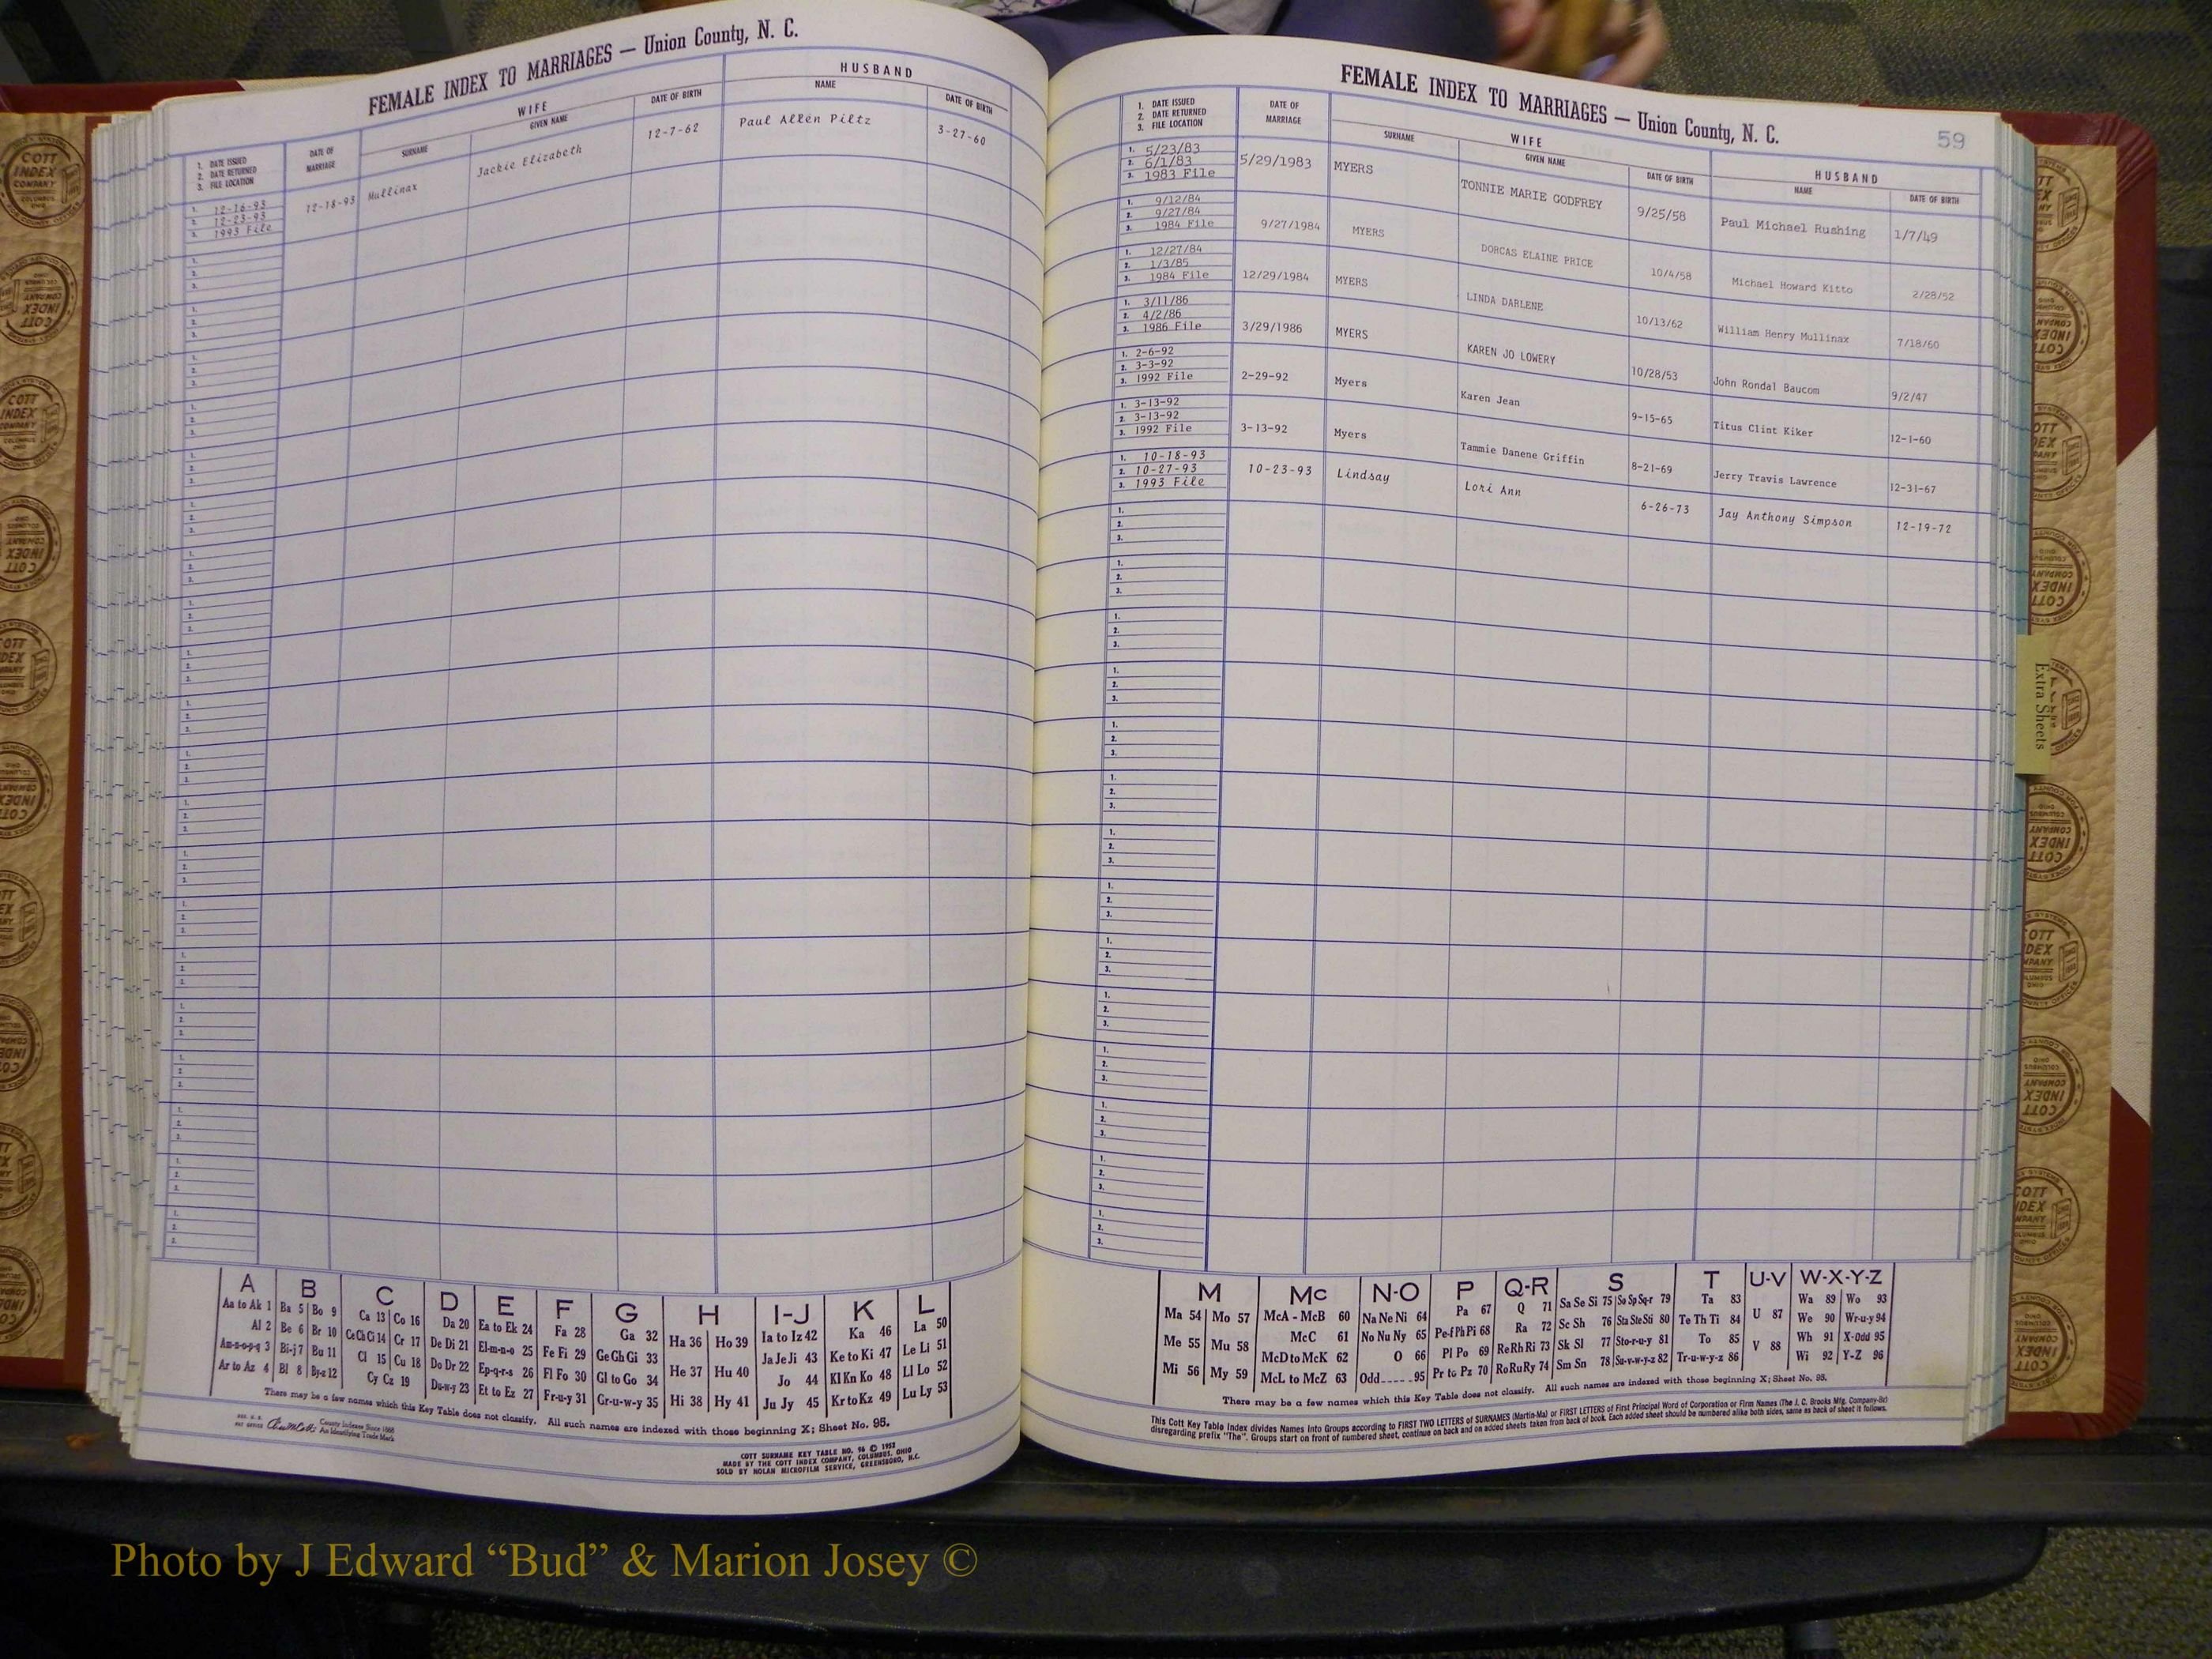 FEMALE INDEX TO MARRIAGES — Union County, N. C.
1. DATE ISSUED
2. DATE RETURNED
3. FILE LOCATION
DATE OF MARRIAGE
WIFE
SURNAME
GIVEN NAME
DATE OF BIRTH
HUSBAND
NAME
DATE OF BIRTH
1. 12-16-93
2. 12-23-93
3. 1993 File
12-18-93 Mullinax Jackie Elizabeth 12-7-62 Paul Allen Piltz 3-27-60
A B C D E F G H I-J K L
Aa to Ak 1 Ba 5 Bo 9 Ca 13 Co 16 Da 20 Ea to Ek 24 Fa 28 Ga 32 Ha 36 Ho 39 Ia to Iz 42 Ka 46 La 50
Al 2 Be 6 Br 10 Ce Ch Ci 14 Cr 17 De Di 21 El-m-n-o 25 Fe Fi 29 Ge Gh Gi 33 He 37 Hu 40 Ja Je Ji 43 Ke to Ki 47 Le Li 51
Am-n-o-p-q 3 Bi-j 7 Bu 11 Cl 15 Cu 18 Do Dr 22 Ep-q-r-s 26 Fl Fo 30 Gl to Go 34 Hi 38 Hy 41 Jo 44 Kl Kn Ko 48 Ll Lo 52
Ar to Az 4 Bl 8 By-z 12 Cy Cz 19 Du-w-y 23 Et to Ez 27 Fr-u-y 31 Gr-u-w-y 35 Ju Jy 45 Kr to Kz 49 Lu Ly 53
There may be a few names which this Key Table does not classify. All such names are indexed with those beginning X; Sheet No. 95.
County Indexes Since 1888
An Identifying Trade Mark
COTT SURNAME KEY TABLE NO. 96 © 1953
MADE BY THE COTT INDEX COMPANY, COLUMBUS, OHIO
SOLD BY NOLAN MICROFILM SERVICE, GREENSBORO, N.C.
FEMALE INDEX TO MARRIAGES — Union County, N. C.
59
1. DATE ISSUED
2. DATE RETURNED
3. FILE LOCATION
DATE OF MARRIAGE
WIFE
SURNAME
GIVEN NAME
DATE OF BIRTH
HUSBAND
NAME
DATE OF BIRTH
1. 5/23/83
2. 6/1/83
3. 1983 File
5/29/1983 MYERS TONNIE MARIE GODFREY 9/25/58 Paul Michael Rushing 1/7/49
1. 9/12/84
2. 9/27/84
3. 1984 File
9/27/1984 MYERS DORCAS ELAINE PRICE 10/4/58 Michael Howard Kitto 2/28/52
1. 12/27/84
2. 1/3/85
3. 1984 File
12/29/1984 MYERS LINDA DARLENE 10/13/62 William Henry Mullinax 7/18/60
1. 3/11/86
2. 4/2/86
3. 1986 File
3/29/1986 MYERS KAREN JO LOWERY 10/28/53 John Rondal Baucom 9/2/47
1. 2-6-92
2. 3-3-92
3. 1992 File
2-29-92 Myers Karen Jean 9-15-65 Titus Clint Kiker 12-1-60
1. 3-13-92
2. 3-13-92
3. 1992 File
3-13-92 Myers Tammie Danene Griffin 8-21-69 Jerry Travis Lawrence 12-31-67
1. 10-18-93
2. 10-27-93
3. 1993 File
10-23-93 Lindsay Lori Ann 6-26-73 Jay Anthony Simpson 12-19-72
Extra Sheets
M Mc N-O P Q-R S T U-V W-X-Y-Z
Ma 54 Mo 57 McA - McB 60 Na Ne Ni 64 Pa 67 Q 71 Sa Se Si 75 So Sp Sq-r 79 Ta 83 U 87 Wa 89 Wo 93
Me 55 Mu 58 McC 61 No Nu Ny 65 Pe-f Ph Pi 68 Ra 72 Sc Sh 76 Sta Ste Sti 80 Te Th Ti 84 V 88 We 90 Wr-u-y 94
Mi 56 My 59 McD to McK 62 O 66 Pl Po 69 Re Rh Ri 73 Sk Sl 77 Sto-r-u-y 81 To 85 Wh 91 X-Odd 95
McL to McZ 63 Odd 95 Pr to Pz 70 Ro Ru Ry 74 Sm Sn 78 Su-v-w-y-z 82 Tr-u-w-y-z 86 Wi 92 Y-Z 96
There may be a few names which this Key Table does not classify. All such names are indexed with those beginning X; Sheet No. 95.
This Cott Key Table Index divides Names Into Groups according to FIRST TWO LETTERS of SURNAMES (Martin-Ma) or FIRST LETTERS of First Principal Word of Corporation or Firm Names (The J. C. Brooks Mfg. Company-Br)
disregarding prefix "The". Groups start on front of numbered sheet, continue on back and on added sheets taken from back of book. Each added sheet should be numbered alike both sides, same as back of sheet it follows.
Photo by J Edward “Bud” & Marion Josey ©